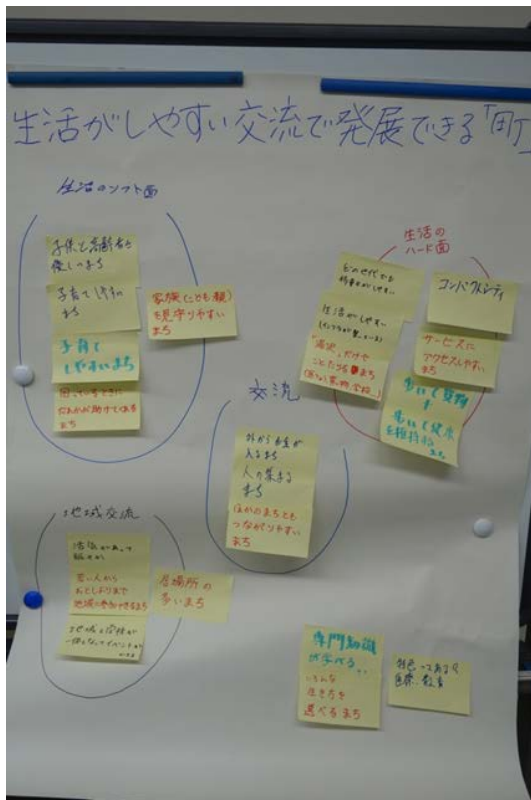 生活がしやすい交流で発展できる「町」
生活のソフト面
子供と高齢者に
優しいまち
子育てしやすい
まち
子育て
しやすいまち
困っているときに
だれかが助けてくれる
まち
家族(こども・親)
を見守りやすい
まち
生活の
ハード面
どの世代でも
生活がしやすい
湯沢だけで
ことたりるまち
コンパクトシティ
サービスに
アクセスしやすい
まち
歩いて買物
歩いて健康
を維持
まち
交流
外からお金が
入るまち
人の集まる
まち
ほかのまちとも
つながりやすい
まち
地域交流
活気があって
若い人から
おとしよりまで
地域に参加できるまち
地域と学校が
居場所の
多いまち
専門知識
が学べる
いろんな
生き方を
選べるまち
特色のある
医療・教育